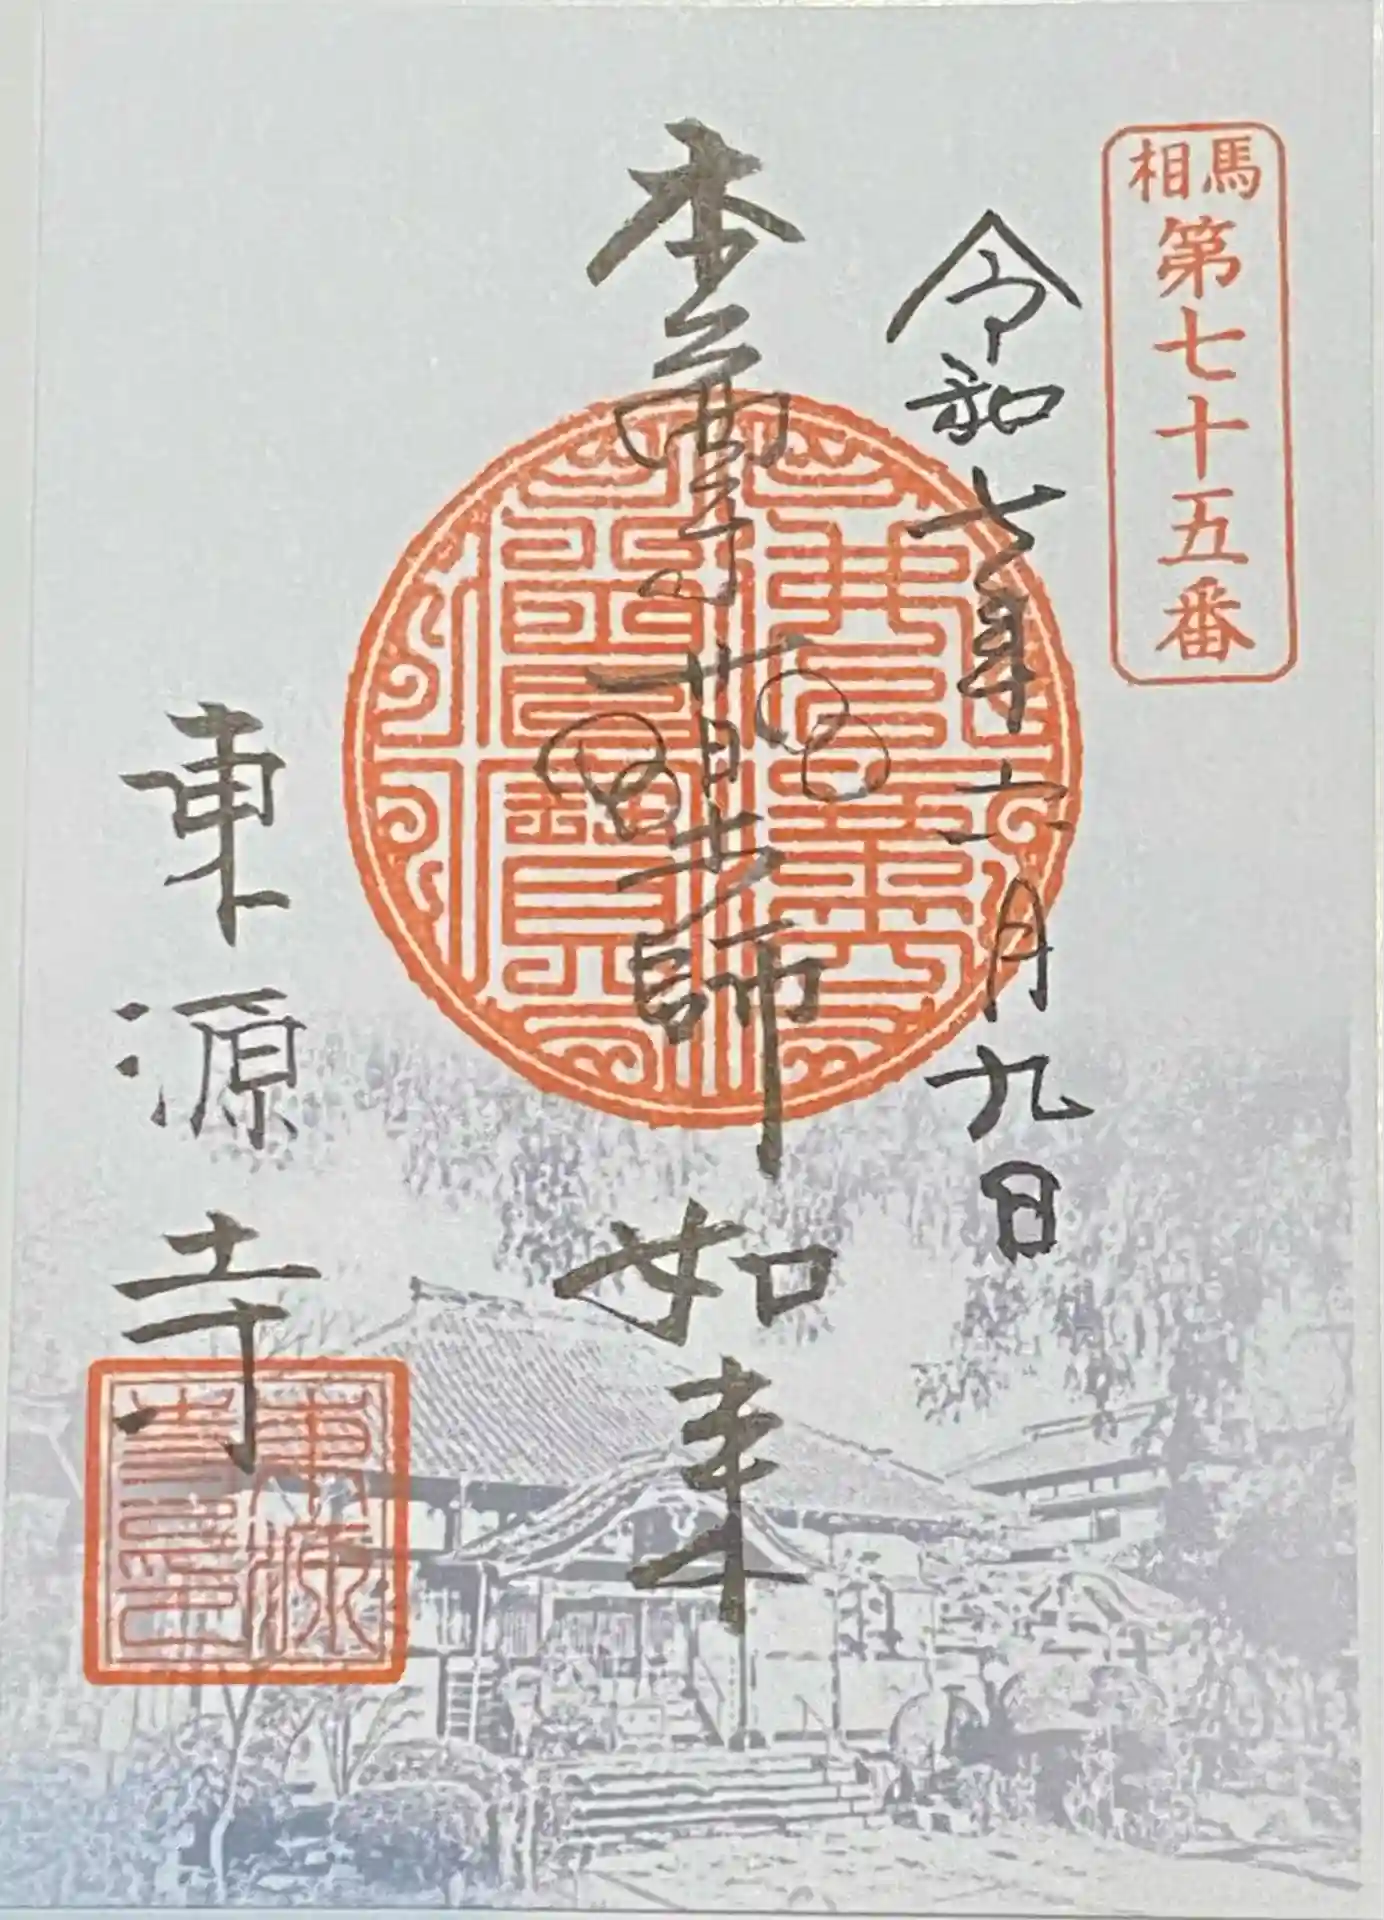 相馬
第七十五番
令和七年六月九日
本尊薬師如来
東源寺
東源寺印